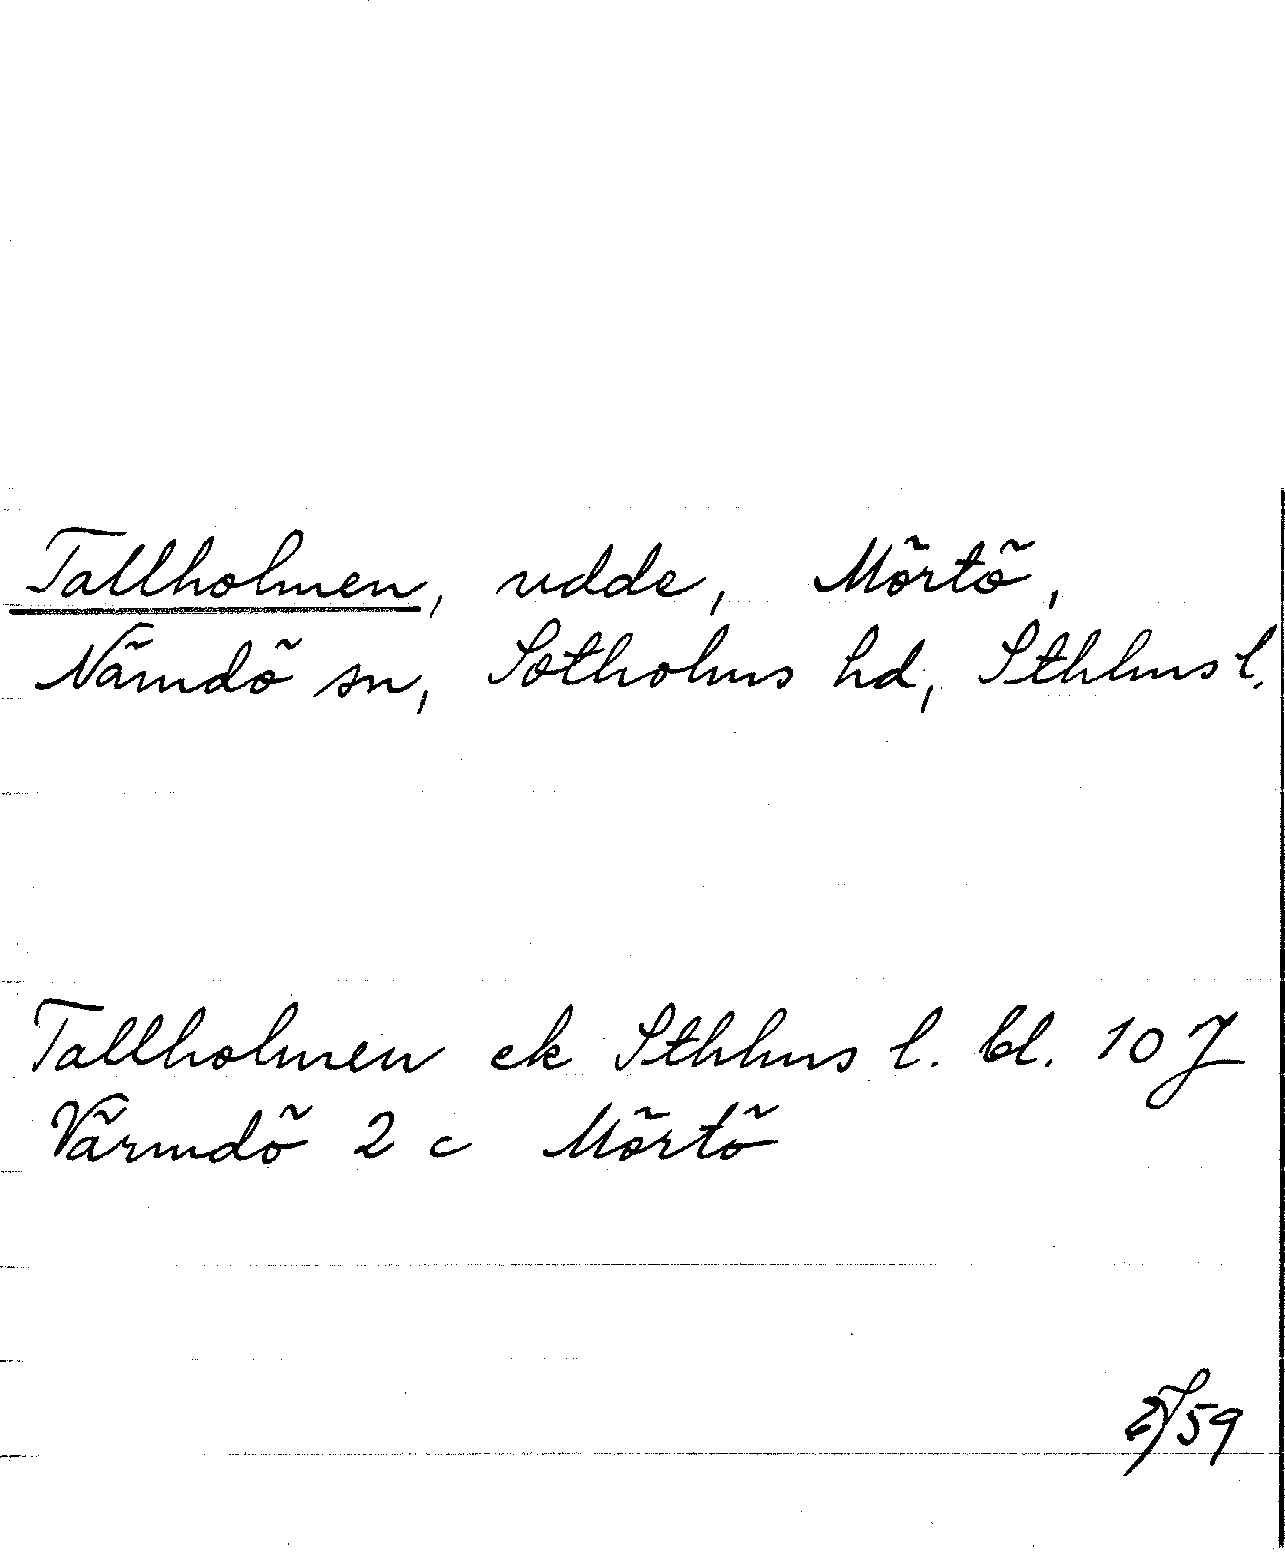 Tallholmen, udde, Mörtö,
Nämdö sn, Sotholms hd, Sthlms l.
Tallholmen ek Sthlms l. bl. 10 J
Värmdö 2 c Mörtö
/59